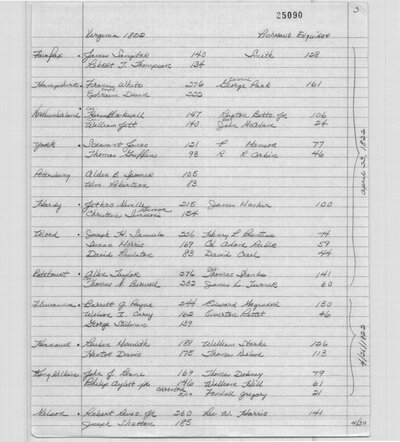 25090
3
Virginia 1822
Richmond Enquirer
Fairfax • James Sangster 140 Smith 128
Robert T. Thompson 134
Hampshire • Francis White 276 George Park 161
222
Northumberland • Blackwell 147 Betts Jr 106
William Jett 140 John McAdam 24
York • Servant Jones 121 P 77
Thomas Griffin 98 R R Corbin 46
Petersburg • Alden B Spooner 105
Wm. Robertson 83
Hardy • Jethro Neville 215 James 100
Christian Simons 154
Wood • Joseph H. Samuels 226 Henry L. Prentiss 74
Isaac Morris 169 Col Adam 59
David 83 David Creel 44
Botetourt • Allen Taylor 276 Thomas 141
Thomas N. Burwell 232 James L. 60
Fluvanna • Barrett G. Payne 244 Edward Magruder 130
Wilson J. Cary 162 Overton 46
George Stillman 139
Hanover • Reuben Meredith 188 William Starke 126
Hector Davis 175 Thomas 113
King William • John J. Roane 169 Thomas Dabney 79
Philip Aylett jr 146 William Hill 61
5/10 Fendall Gregory 21
Nelson • Robert Rives, Jr. 260 Lee W. Harris 141
Joseph Shelton 185
April 23, 1822
4/30